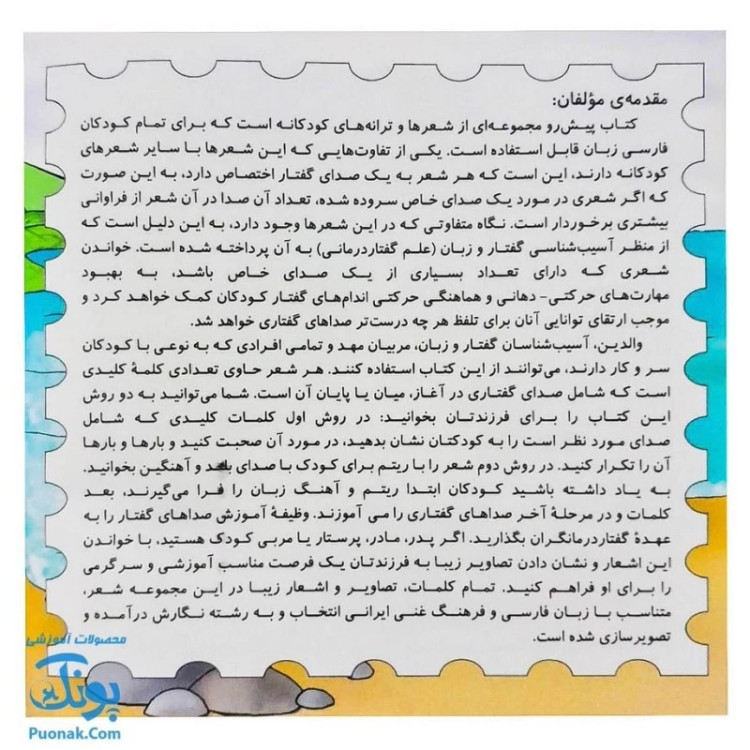 مقدمه‌ی مؤلفان:
کتاب پیش‌رو مجموعه‌ای از شعرها و ترانه‌های کودکانه است که برای تمام کودکان
فارسی زبان قابل استفاده است. یکی از تفاوت‌هایی که این شعرها با سایر شعرهای
کودکانه دارند، این است که هر شعر به یک صدای گفتار اختصاص دارد، به این صورت
که اگر شعری در مورد یک صدای خاص سروده شده، تعداد آن صدا در آن شعر از فراوانی
بیشتری برخوردار است. نگاه متفاوتی که در این شعرها وجود دارد، به این دلیل است که
از منظر آسیب‌شناسی گفتار و زبان (علم گفتاردرمانی) به آن پرداخته شده است. خواندن
شعری که دارای تعداد بسیاری از یک صدای خاص باشد، به بهبود
مهارت‌های حرکتی- دهانی و هماهنگی حرکتی اندام‌های گفتار کودکان کمک خواهد کرد و
موجب ارتقای توانایی آنان برای تلفظ هر چه درست‌تر صداهای گفتاری خواهد شد.
والدین، آسیب‌شناسان گفتار و زبان، مربیان مهد و تمامی افرادی که به نوعی با کودکان
سر و کار دارند، می‌توانند از این کتاب استفاده کنند. هر شعر حاوی تعدادی کلمهٔ کلیدی
است که شامل صدای گفتاری در آغاز، میان یا پایان آن است. شما می‌توانید به دو روش
این کتاب را برای فرزندتان بخوانید: در روش اول کلمات کلیدی که شامل
صدای مورد نظر است را به کودکتان نشان بدهید، در مورد آن صحبت کنید و بارها و بارها
آن را تکرار کنید. در روش دوم شعر را با ریتم برای کودک با صدای بلند و آهنگین بخوانید.
به یاد داشته باشید کودکان ابتدا ریتم و آهنگ زبان را فرا می‌گیرند، بعد
کلمات و در مرحلهٔ آخر صداهای گفتاری را می آموزند. وظیفهٔ آموزش صداهای گفتار را به
عهدهٔ گفتاردرمانگران بگذارید. اگر پدر، مادر، پرستار یا مربی کودک هستید، با خواندن
این اشعار و نشان دادن تصاویر زیبا به فرزندتان یک فرصت مناسب آموزشی و سرگرمی
را برای او فراهم کنید. تمام کلمات، تصاویر و اشعار زیبا در این مجموعه شعر،
متناسب با زبان فارسی و فرهنگ غنی ایرانی انتخاب و به رشته نگارش درآمده و
تصویرسازی شده است.
محصولات آموزشی
پونک
Puonak.Com